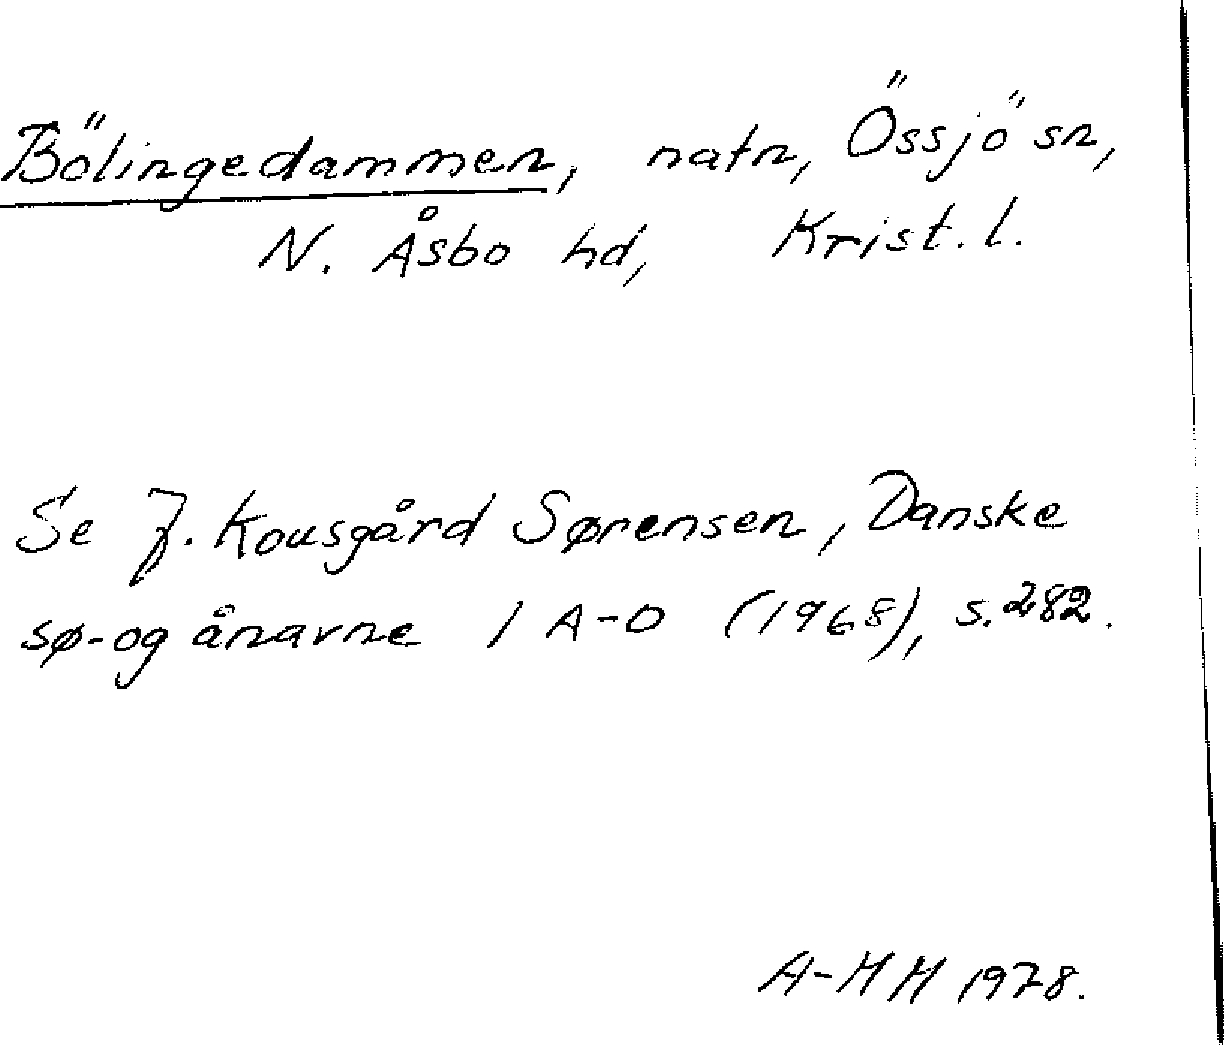 Bölingedammen, natn, Össjö sn,
N. Åsbo hd, Krist. l.
Se J. Kousgård Sørensen, Danske
sø- og ånavne 1 A-D (1968), s. 282.
A-HH 1978.